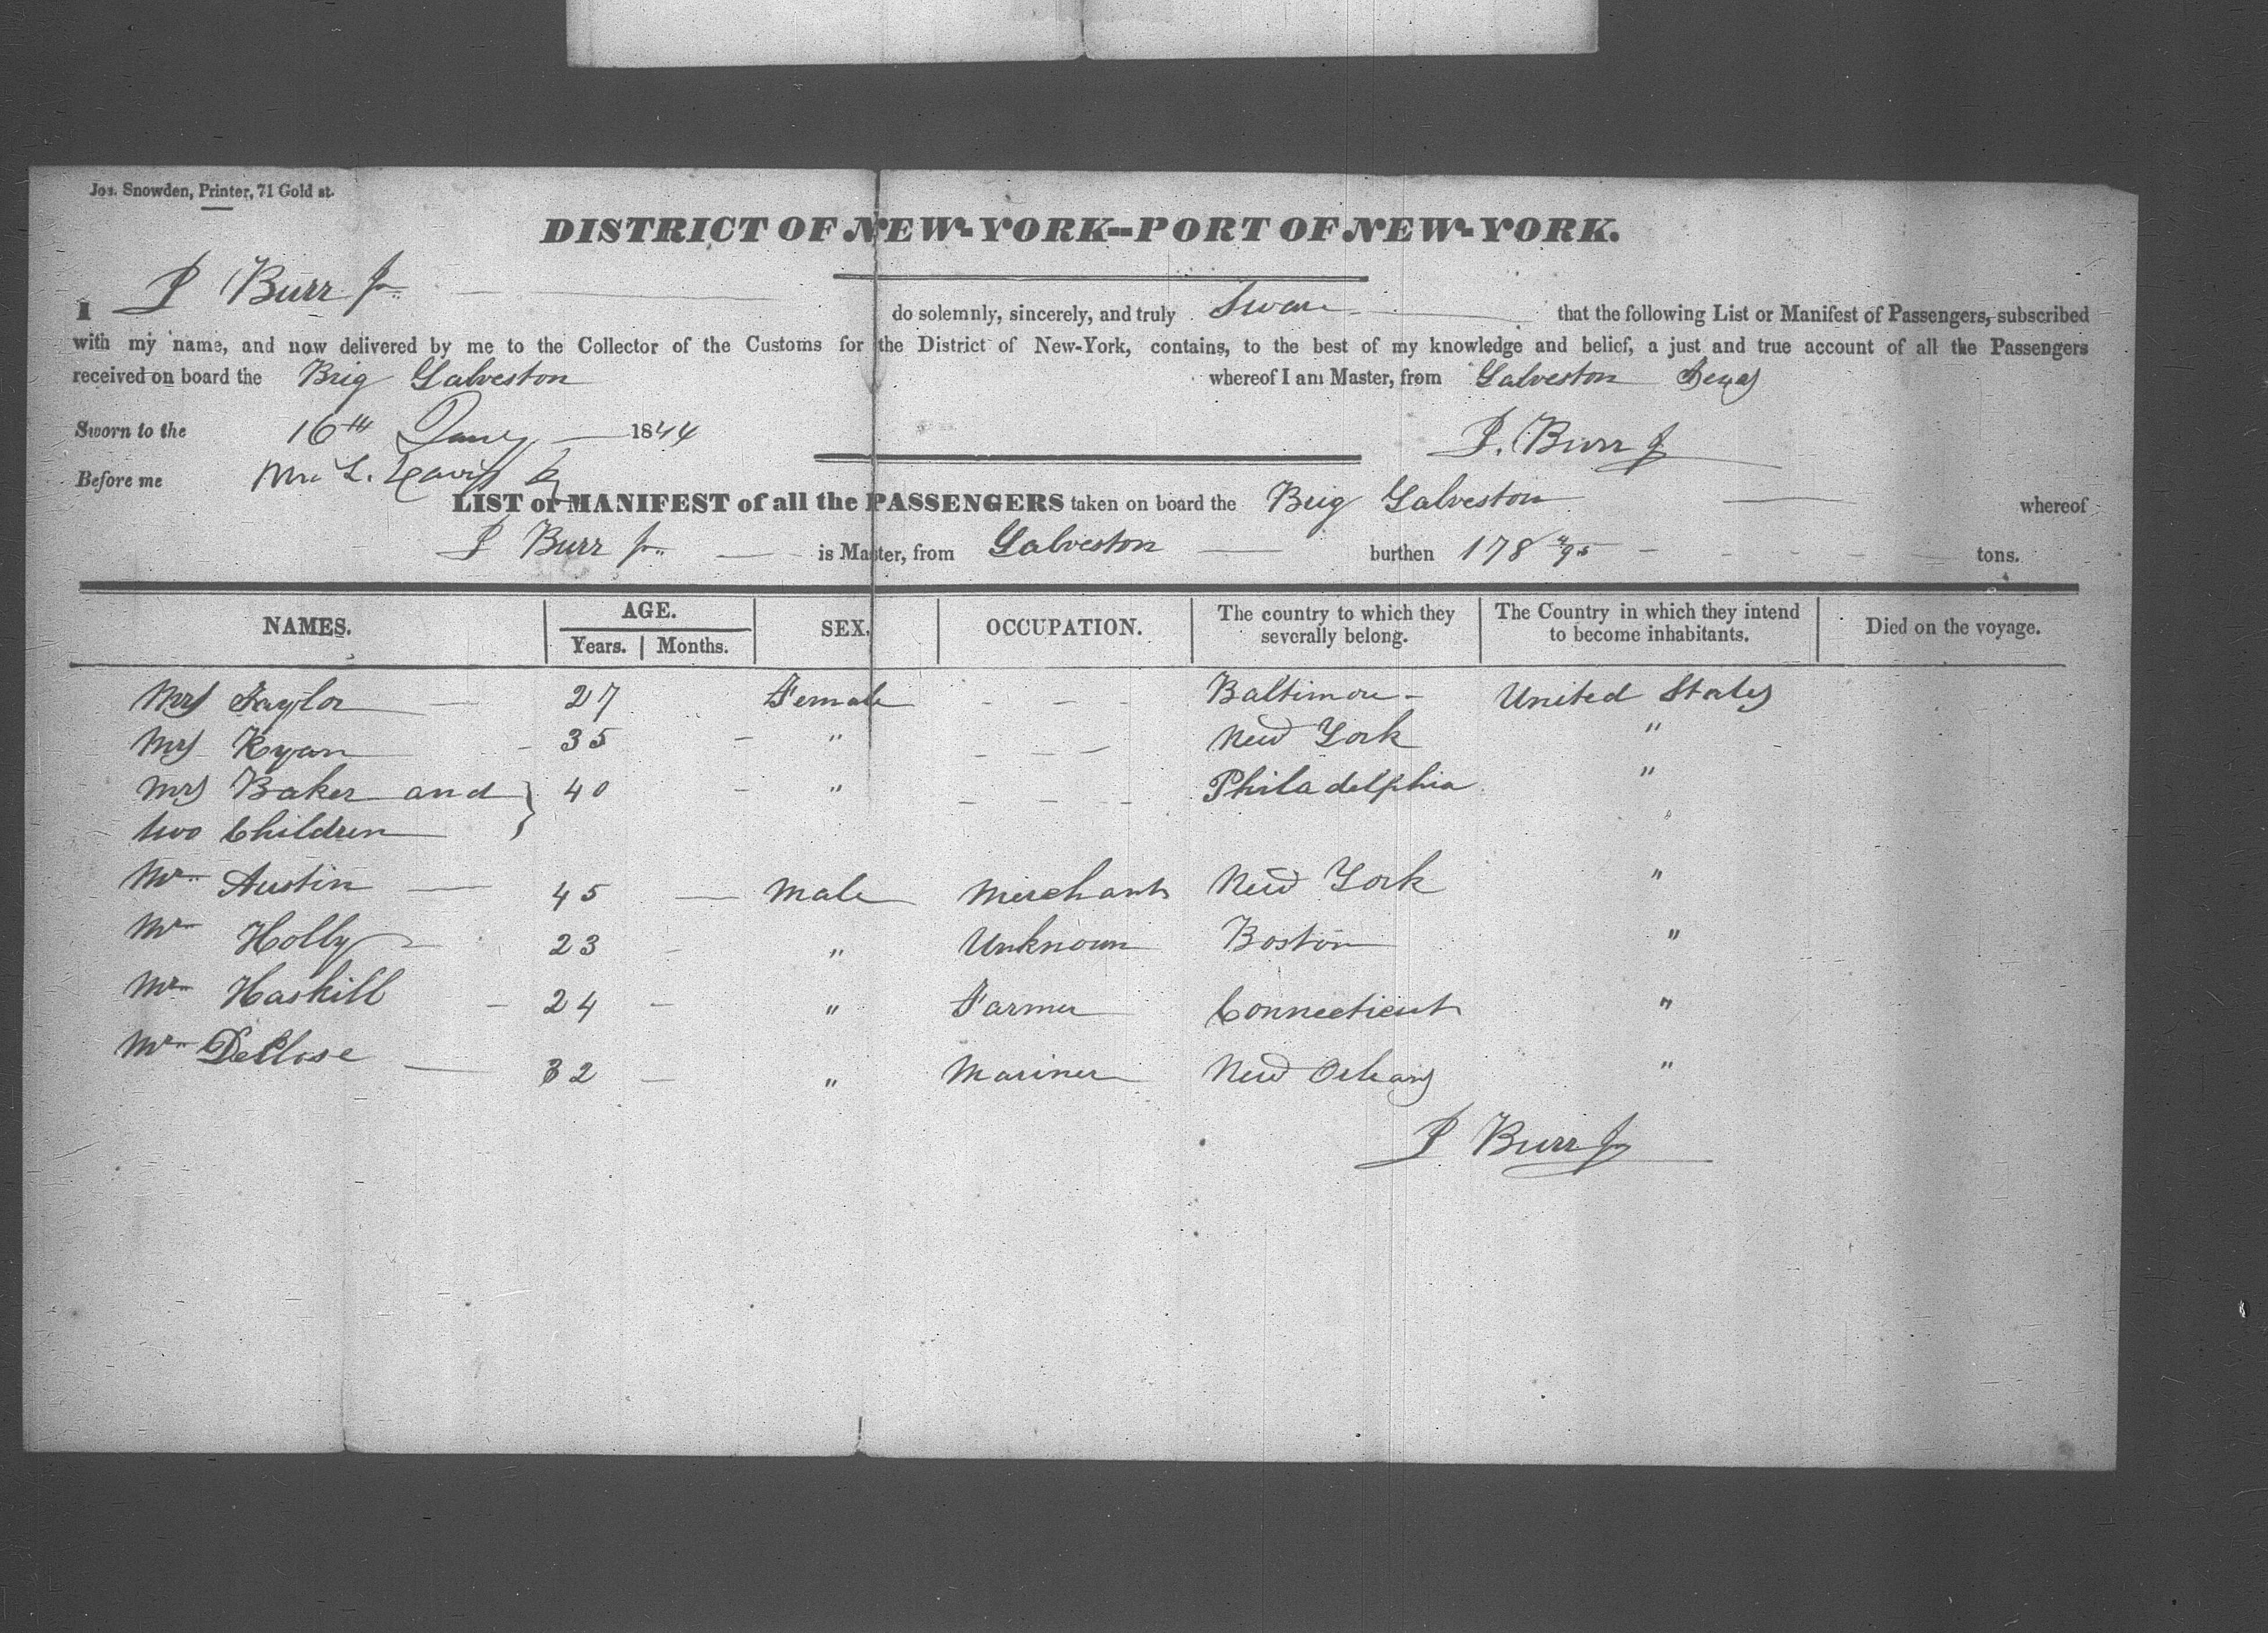 Jos. Snowden, Printer, 71 Gold st.
DISTRICT OF NEW-YORK--PORT OF NEW-YORK.
I P Burr Jr. do solemnly, sincerely, and truly Swear that the following List or Manifest of Passengers, subscribed
with my name, and now delivered by me to the Collector of the Customs for the District of New-York, contains, to the best of my knowledge and belief, a just and true account of all the Passengers
received on board the Brig Galveston whereof I am Master, from Galveston Texas
Sworn to the 16th Jany 1844
P. Burr Jr
Before me
LIST or MANIFEST of all the PASSENGERS taken on board the Brig Galveston whereof
P Burr Jr. is Master, from Galveston burthen 178 /95 tons.
NAMES. AGE. Years. Months. SEX. OCCUPATION. The country to which they severally belong. The Country in which they intend to become inhabitants. Died on the voyage.
Mrs Taylor 27 Female Baltimore United States
Mrs Ryan 35 " New York "
Mrs Baker and 40 " Philadelphia "
two Children
Mr Austin 45 Male Merchant New York "
Mr Holly 23 " Unknown Boston "
Mr Haskill 24 " Farmer Connecticut "
Mr 32 " Mariner New Orleans "
P Burr Jr